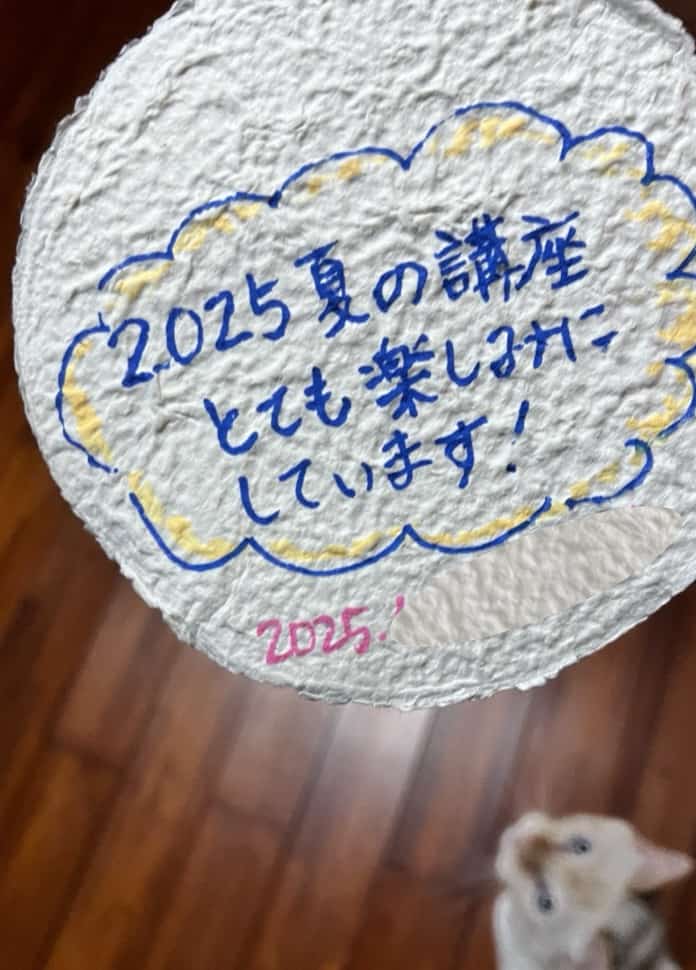 2025夏の講座
とても楽しみに
しています!
2025.